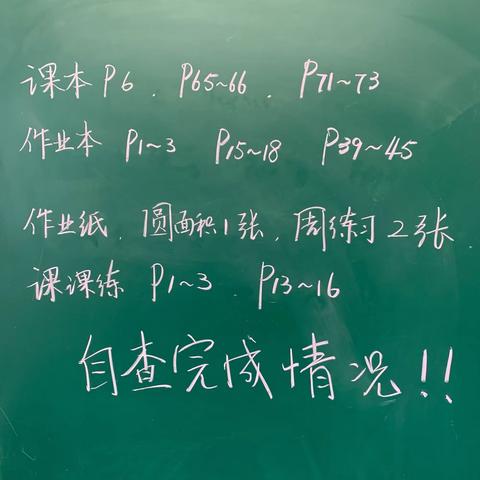 课本 P6、P65~66、P71~73
作业本 P1~3 P15~18 P39~45
作业纸、圆面积1张、周练习2张
课课练 P1~3 P13~16
自查完成情况!!